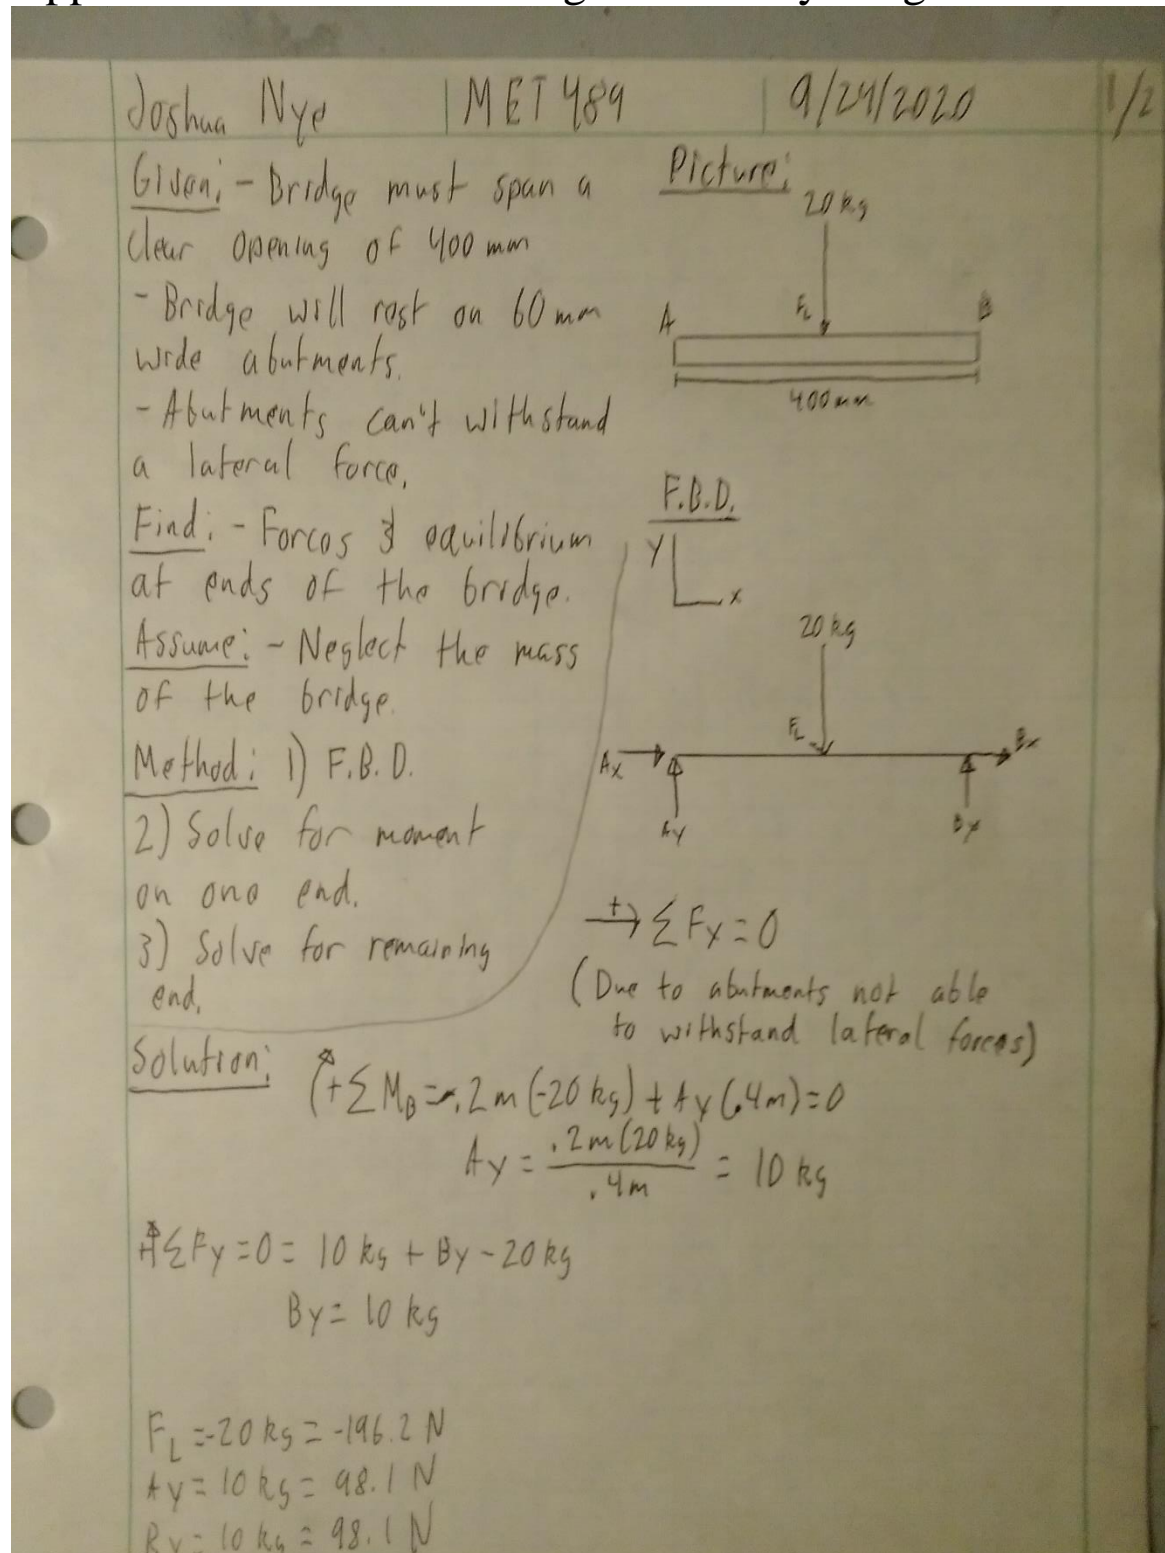 Joshua Nye | MET 489 | 9/24/2020 1/2
Given: - Bridge must span a
clear opening of 400 mm
- Bridge will rest on 60 mm
wide abutments.
- Abutments can't withstand
a lateral force.
Find: - Forces & equilibrium
at ends of the bridge.
Assume: - Neglect the mass
of the bridge.
Method: 1) F.B.D.
2) Solve for moment
on one end.
3) Solve for remaining
end.
Picture:
20 kg
FL
A B
400 mm
F.B.D.
Y
x
20 kg
FL
Ax Bx
Ay By
→+ ΣFx = 0
(Due to abutments not able
to withstand lateral forces)
Solution:
(+ΣMB = .2m(-20 kg) + Ay(.4m) = 0
Ay = .2m(20kg) / .4m = 10 kg
+↑ΣFy = 0 = 10 kg + By - 20 kg
By = 10 kg
FL = -20 kg = -196.2 N
Ay = 10 kg = 98.1 N
By = 10 kg = 98.1 N